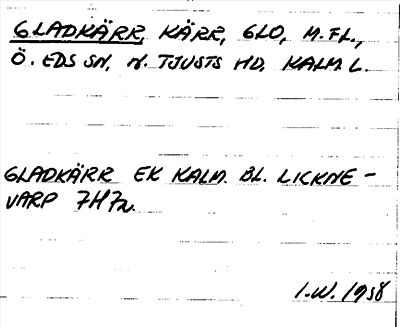 GLADKÄRR, KÄRR, GLO, M.FL.,
Ö. EDS SN, N. TJUSTS HD, KALM. L.
GLADKÄRR EK KALM. BL. LICKNE-
VARP 7H7a.
I.W. 1958